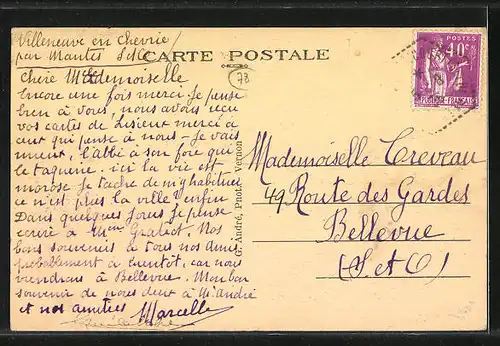 Villeneuve en Chevrie
par Mantes S&O
CARTE POSTALE
78
POSTES
40c
Chère Mademoiselle
Encore une fois merci je pense
bien à vous, nous avons reçu
vos cartes de Lisieux merci à
ceux qui pense à nous - je vais
l'abbé a son foie qui
le taquine. ici la vie est
morose je tache de m'y habituer
ce n'est plus la ville enfin
Dans quelques jours je pense
écrire à Mme Nos
bons souvenirs à tous nos amis
probablement à bientôt, car nous
viendrons à Bellevue. Mon bon
souvenir de nous deux à Mr André
et nos amitiés Marcelle
G. André, Photo. Vernon
Mademoiselle Creveau
49 Route des Gardes
Bellevue
(S et O)